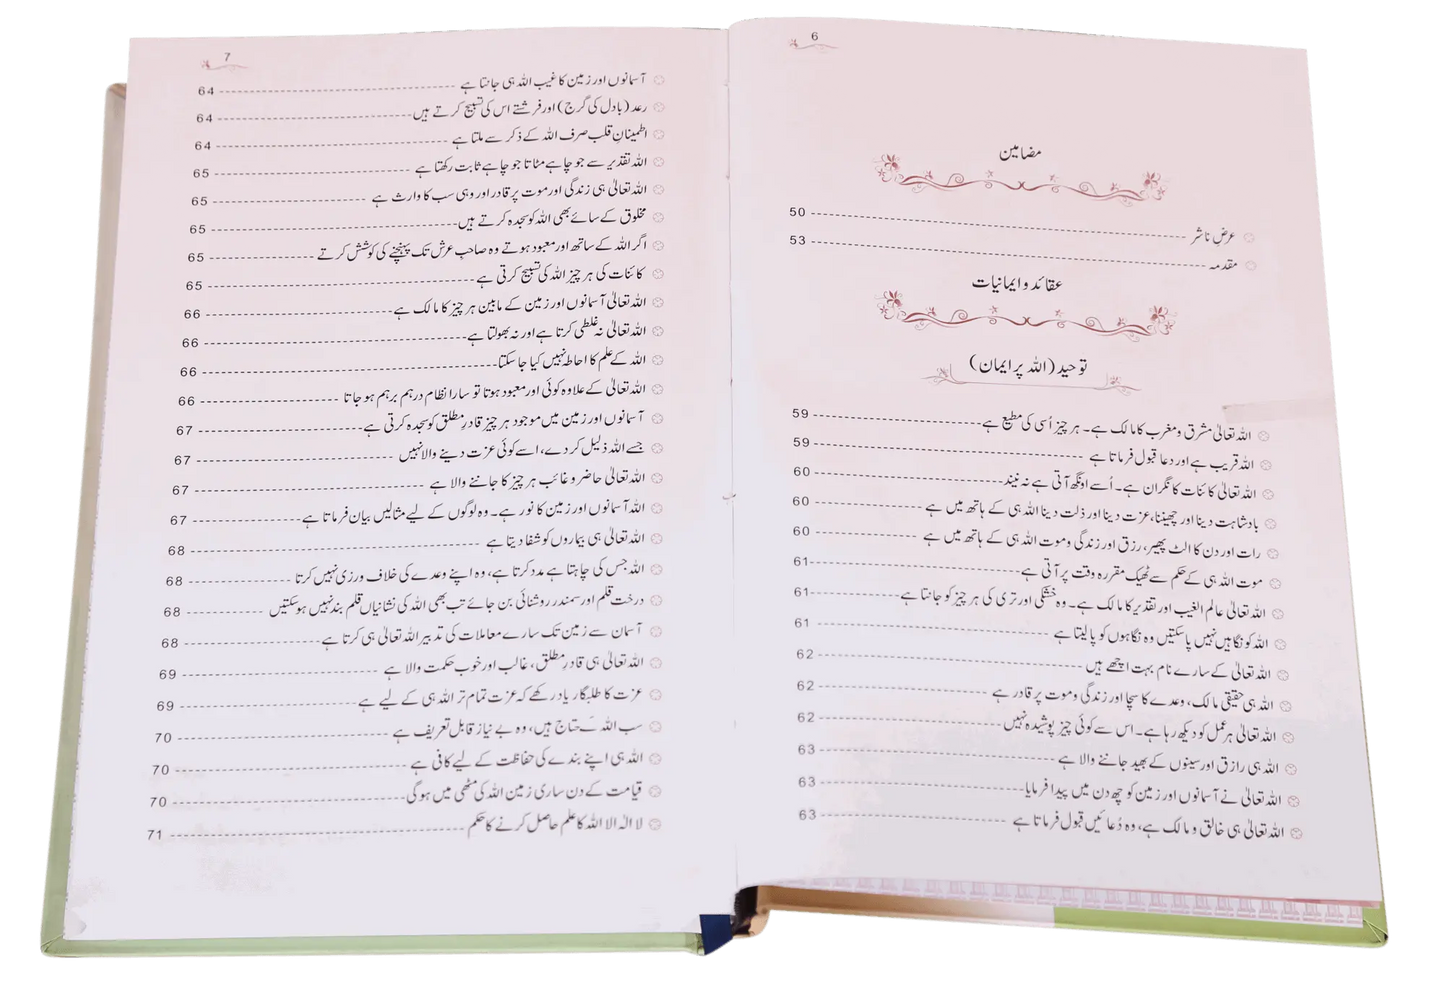 6
مضامین
عرضِ ناشر 50
مقدمہ 53
عقائد و ایمانیات
توحید (اللہ پر ایمان)
اللہ تعالیٰ مشرق و مغرب کا مالک ہے۔ ہر چیز اُسی کی مطیع ہے 59
اللہ قریب ہے اور دعا قبول فرماتا ہے 59
اللہ تعالیٰ کائنات کا نگران ہے۔ اُسے اونگھ آتی ہے نہ نیند 60
بادشاہت دینا اور چھیننا، عزت دینا اور ذلت دینا اللہ ہی کے ہاتھ میں ہے 60
رات اور دن کا الٹ پھیر، رزق اور زندگی و موت اللہ ہی کے ہاتھ میں ہے 60
موت اللہ ہی کے حکم سے ٹھیک مقررہ وقت پر آتی ہے 61
اللہ تعالیٰ عالم الغیب اور تقدیر کا مالک ہے۔ وہ خشکی اور تری کی ہر چیز کو جانتا ہے 61
اللہ کو نگاہیں نہیں پاسکتیں وہ نگاہوں کو پالیتا ہے 61
اللہ تعالیٰ کے سارے نام بہت اچھے ہیں 62
اللہ ہی حقیقی مالک، وعدے کا سچا اور زندگی و موت پر قادر ہے 62
اللہ تعالیٰ ہر عمل کو دیکھ رہا ہے۔ اس سے کوئی چیز پوشیدہ نہیں 62
اللہ ہی رازق اور سینوں کے بھید جاننے والا ہے 63
اللہ تعالیٰ نے آسمانوں اور زمین کو چھ دن میں پیدا فرمایا 63
اللہ تعالیٰ ہی خالق و مالک ہے، وہ دُعائیں قبول فرماتا ہے 63
7
آسمانوں اور زمین کا غیب اللہ ہی جانتا ہے 64
رعد (بادل کی گرج) اور فرشتے اس کی تسبیح کرتے ہیں 64
اطمینانِ قلب صرف اللہ کے ذکر سے ملتا ہے 64
اللہ تقدیر سے جو چاہے مٹاتا جو چاہے ثابت رکھتا ہے 65
اللہ تعالیٰ ہی زندگی اور موت پر قادر اور وہی سب کا وارث ہے 65
مخلوق کے سائے بھی اللہ کو سجدہ کرتے ہیں 65
اگر اللہ کے ساتھ اور معبود ہوتے وہ صاحبِ عرش تک پہنچنے کی کوشش کرتے 65
کائنات کی ہر چیز اللہ کی تسبیح کرتی ہے 65
اللہ تعالیٰ آسمانوں اور زمین کے مابین ہر چیز کا مالک ہے 66
اللہ تعالیٰ نہ غلطی کرتا ہے اور نہ بھولتا ہے 66
اللہ کے علم کا احاطہ نہیں کیا جا سکتا 66
اللہ تعالیٰ کے علاوہ کوئی اور معبود ہوتا تو سارا نظام درہم برہم ہو جاتا 66
آسمانوں اور زمین میں موجود ہر چیز قادرِ مطلق کو سجدہ کرتی ہے 67
جسے اللہ ذلیل کر دے، اسے کوئی عزت دینے والا نہیں 67
اللہ تعالیٰ حاضر و غائب ہر چیز کا جاننے والا ہے 67
اللہ آسمانوں اور زمین کا نور ہے۔ وہ لوگوں کے لیے مثالیں بیان فرماتا ہے 67
اللہ تعالیٰ ہی بیماروں کو شفا دیتا ہے 68
اللہ جس کی چاہتا ہے مدد کرتا ہے، وہ اپنے وعدے کی خلاف ورزی نہیں کرتا 68
درخت قلم اور سمندر روشنائی بن جائے تب بھی اللہ کی نشانیاں قلم بند نہیں ہوسکتیں 68
آسمان سے زمین تک سارے معاملات کی تدبیر اللہ تعالیٰ ہی کرتا ہے 68
اللہ تعالیٰ ہی قادرِ مطلق، غالب اور خوب حکمت والا ہے 69
عزت کا طلبگار یاد رکھے کہ عزت تمام تر اللہ ہی کے لیے ہے 69
سب اللہ کے محتاج ہیں، وہ بے نیاز قابل تعریف ہے 70
اللہ ہی اپنے بندے کی حفاظت کے لیے کافی ہے 70
قیامت کے دن ساری زمین اللہ کی مٹھی میں ہو گی 70
لا الٰہ الا اللہ کا علم حاصل کرنے کا حکم 71